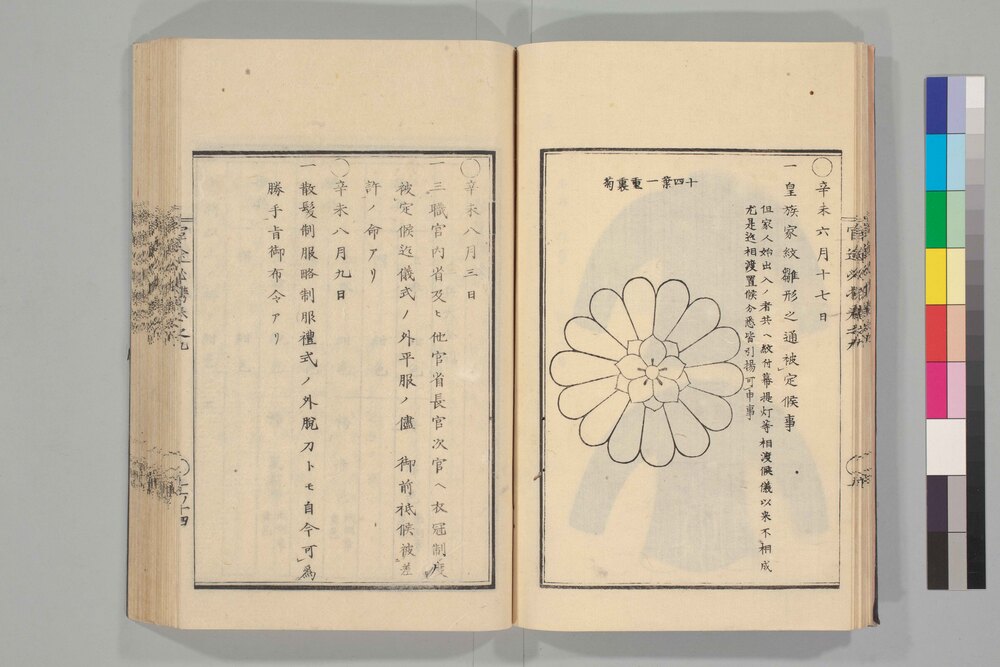 辛未六月十七日
一皇族家紋雛形之通被定候事
但家人始出入ノ者共ヘ紋付幕提灯等相渡候儀以来不相成
尤是迄相渡置候分悉皆引揚可申事
十四葉一重裏菊
辛未八月三日
一三職官内省及ヒ他官省長官次官ヘ衣冠制度
被定候迄儀式ノ外平服ノ儘 御前祗候被差
許ノ命アリ
辛未八月九日
一散髪制服略制服禮式ノ外脱刀トモ自今可為
勝手旨御布令アリ
十四